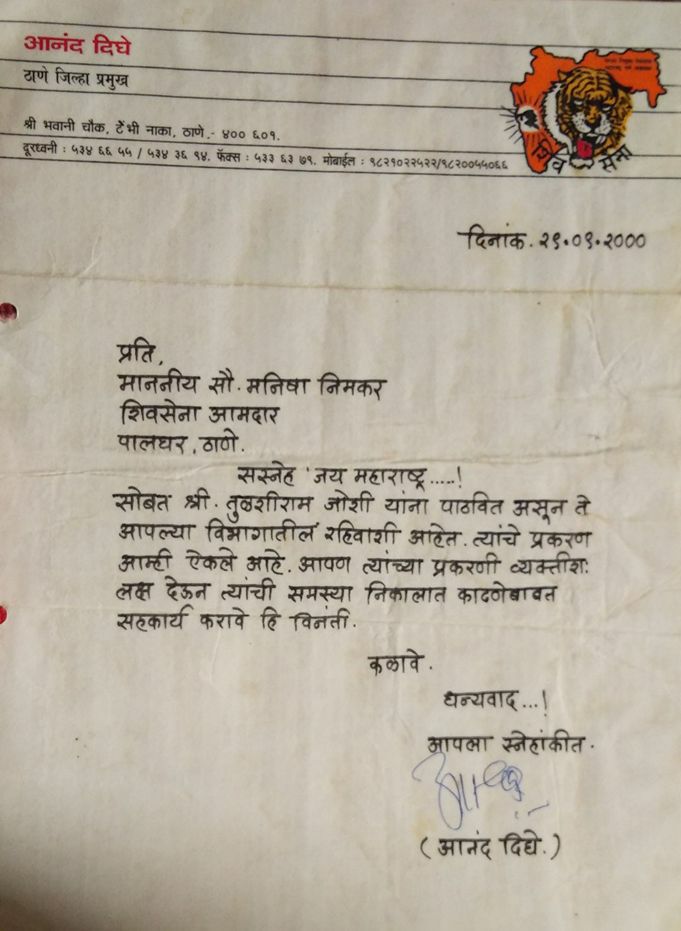 आनंद दिघे
ठाणे जिल्हा प्रमुख
श्री भवानी चौक, टेंभी नाका, ठाणे,- ४०० ६०१.
दूरध्वनी : ५३४ ६६ ५५ / ५३४ ३६ ९४. फॅक्स : ५३३ ६३ ७९. मोबाईल : ९८२१०२२५२२/९८२००५५०६६
शिव सेना
दिनांक. २९.०९.२०००
प्रति,
माननीय सौ. मनिषा निमकर
शिवसेना आमदार
पालघर, ठाणे.
सस्नेह 'जय महाराष्ट्र.....!
सोबत श्री. तुळशीराम जोशी यांना पाठवित असून ते
आपल्या विभागातील रहिवाशी आहेत. त्यांचे प्रकरण
आम्ही ऐकले आहे. आपण त्यांच्या प्रकरणी व्यक्तीशः
लक्ष देऊन त्यांची समस्या निकालात काढणेबाबत
सहकार्य करावे हि विनंती.
कळावे.
धन्यवाद...!
आपला स्नेहांकीत.
(आनंद दिघे.)